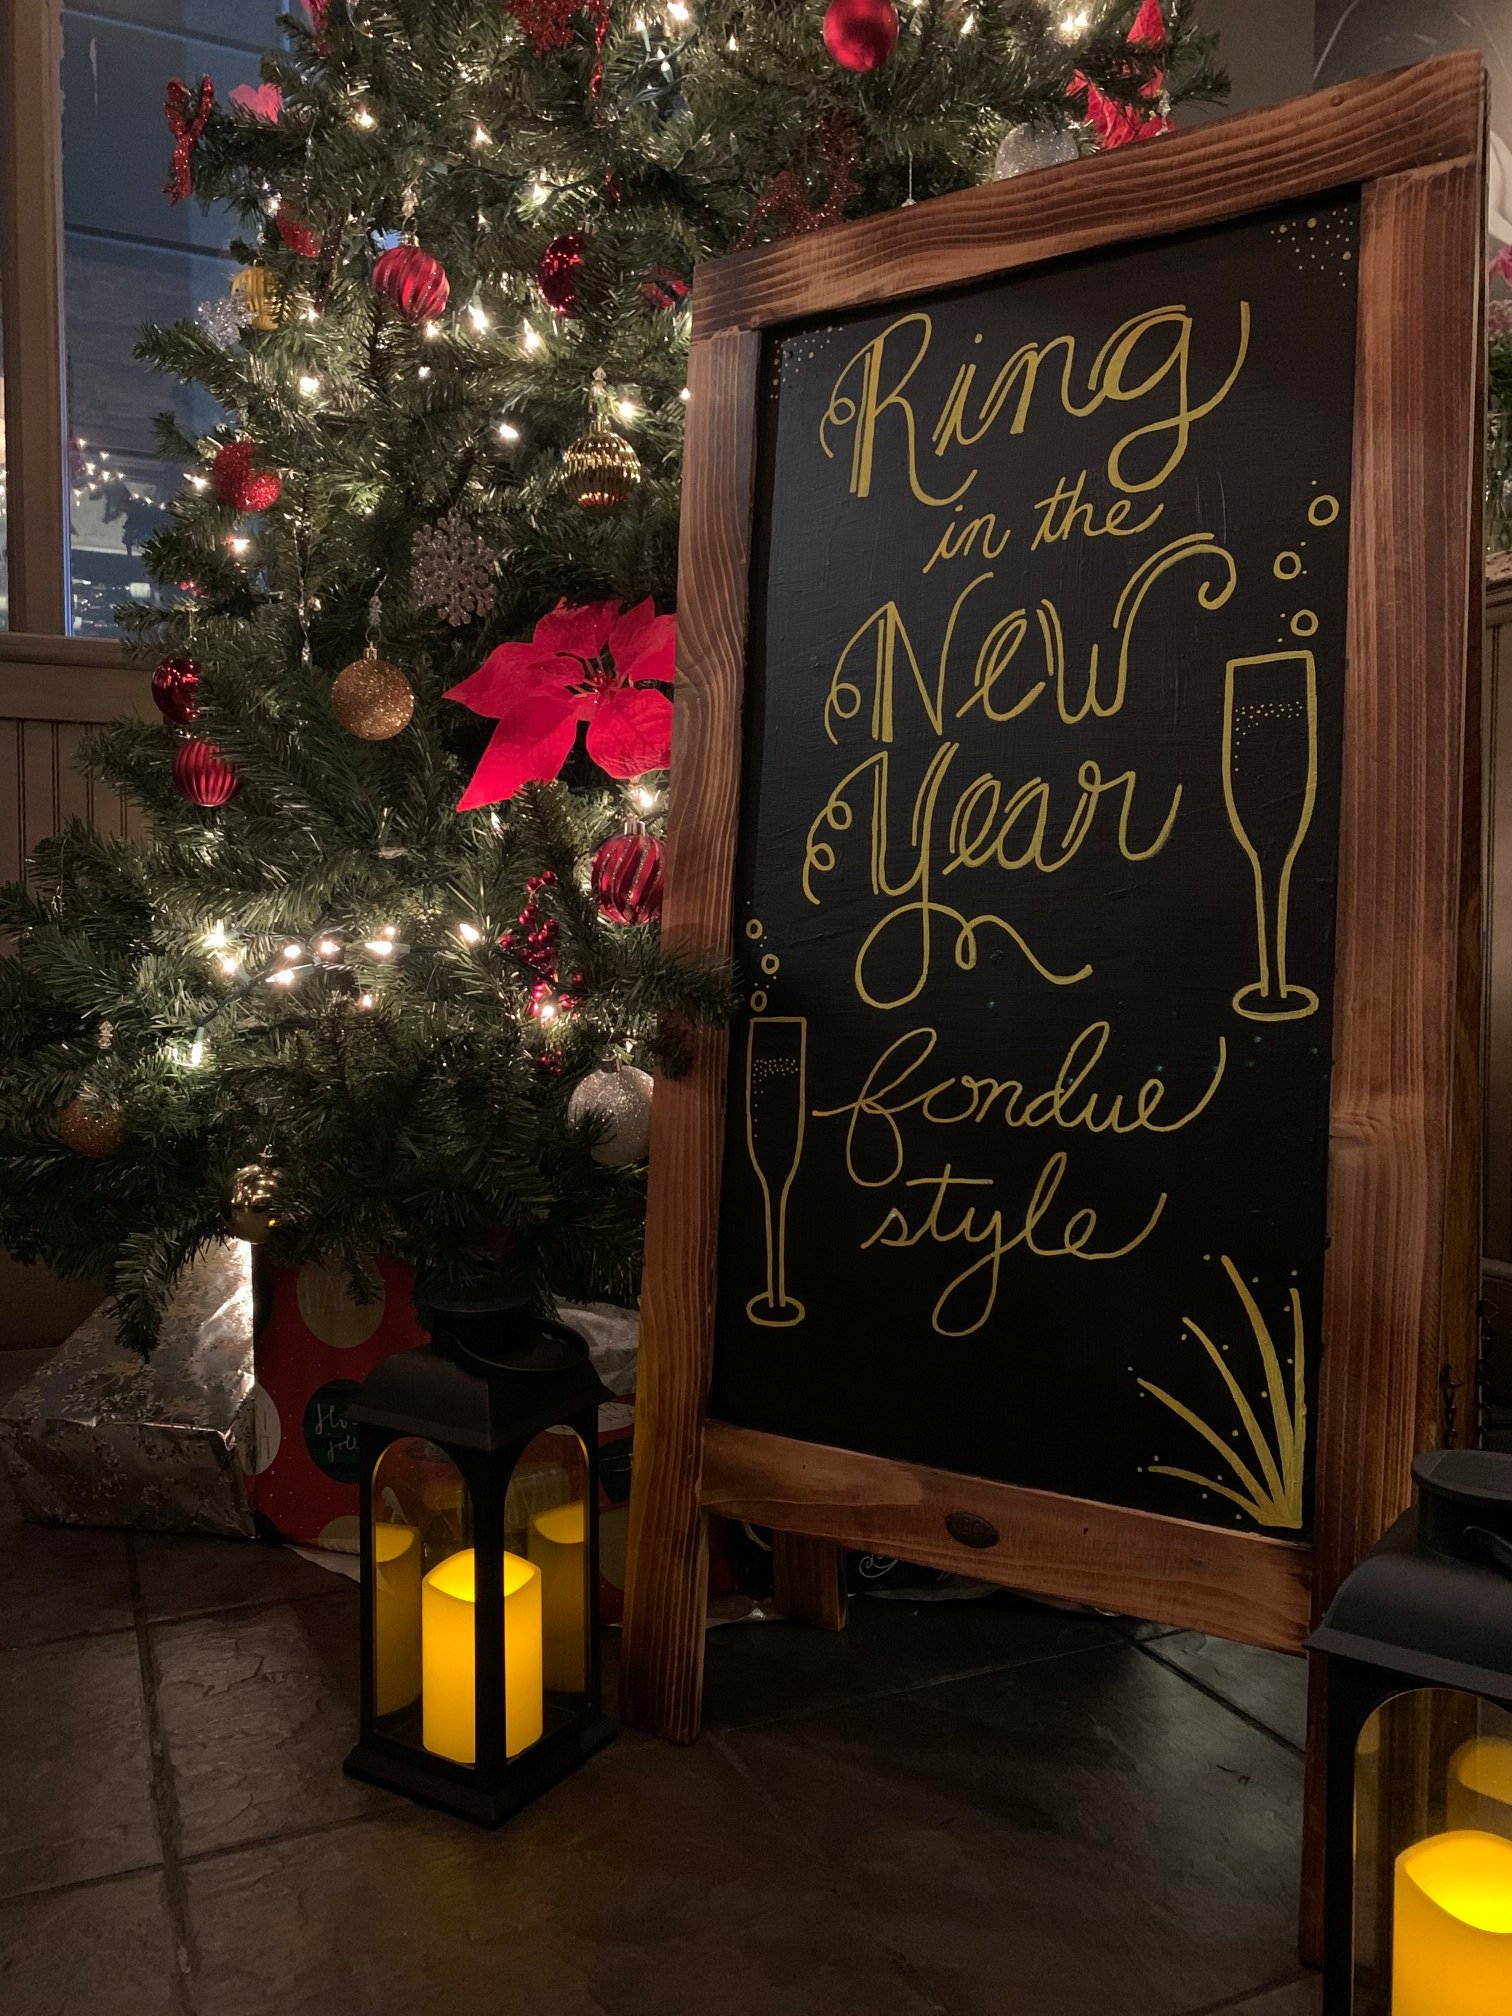 Ring
in the
New
Year
fondue
style